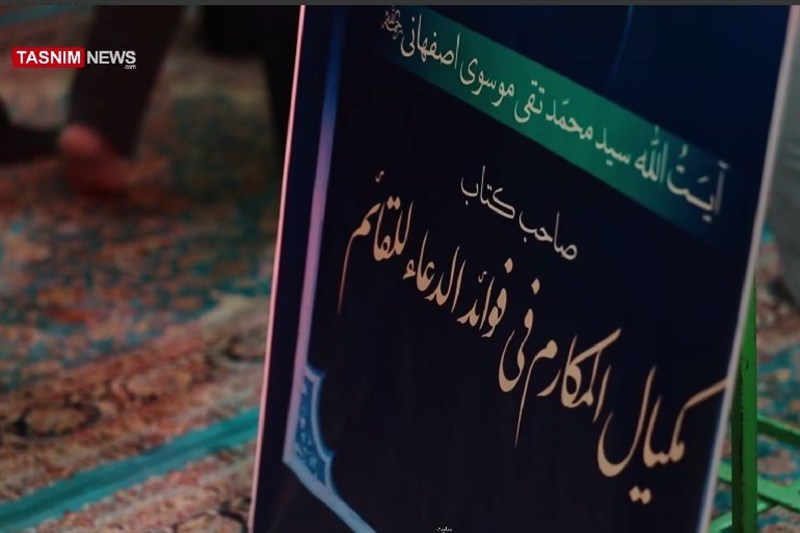 TASNIM NEWS
.com
آیَتُ اللّٰه سید محمّد تقی موسوی اصفهانی
صاحب کتاب
مکیال المکارم فی فوائد الدعاء للقائم